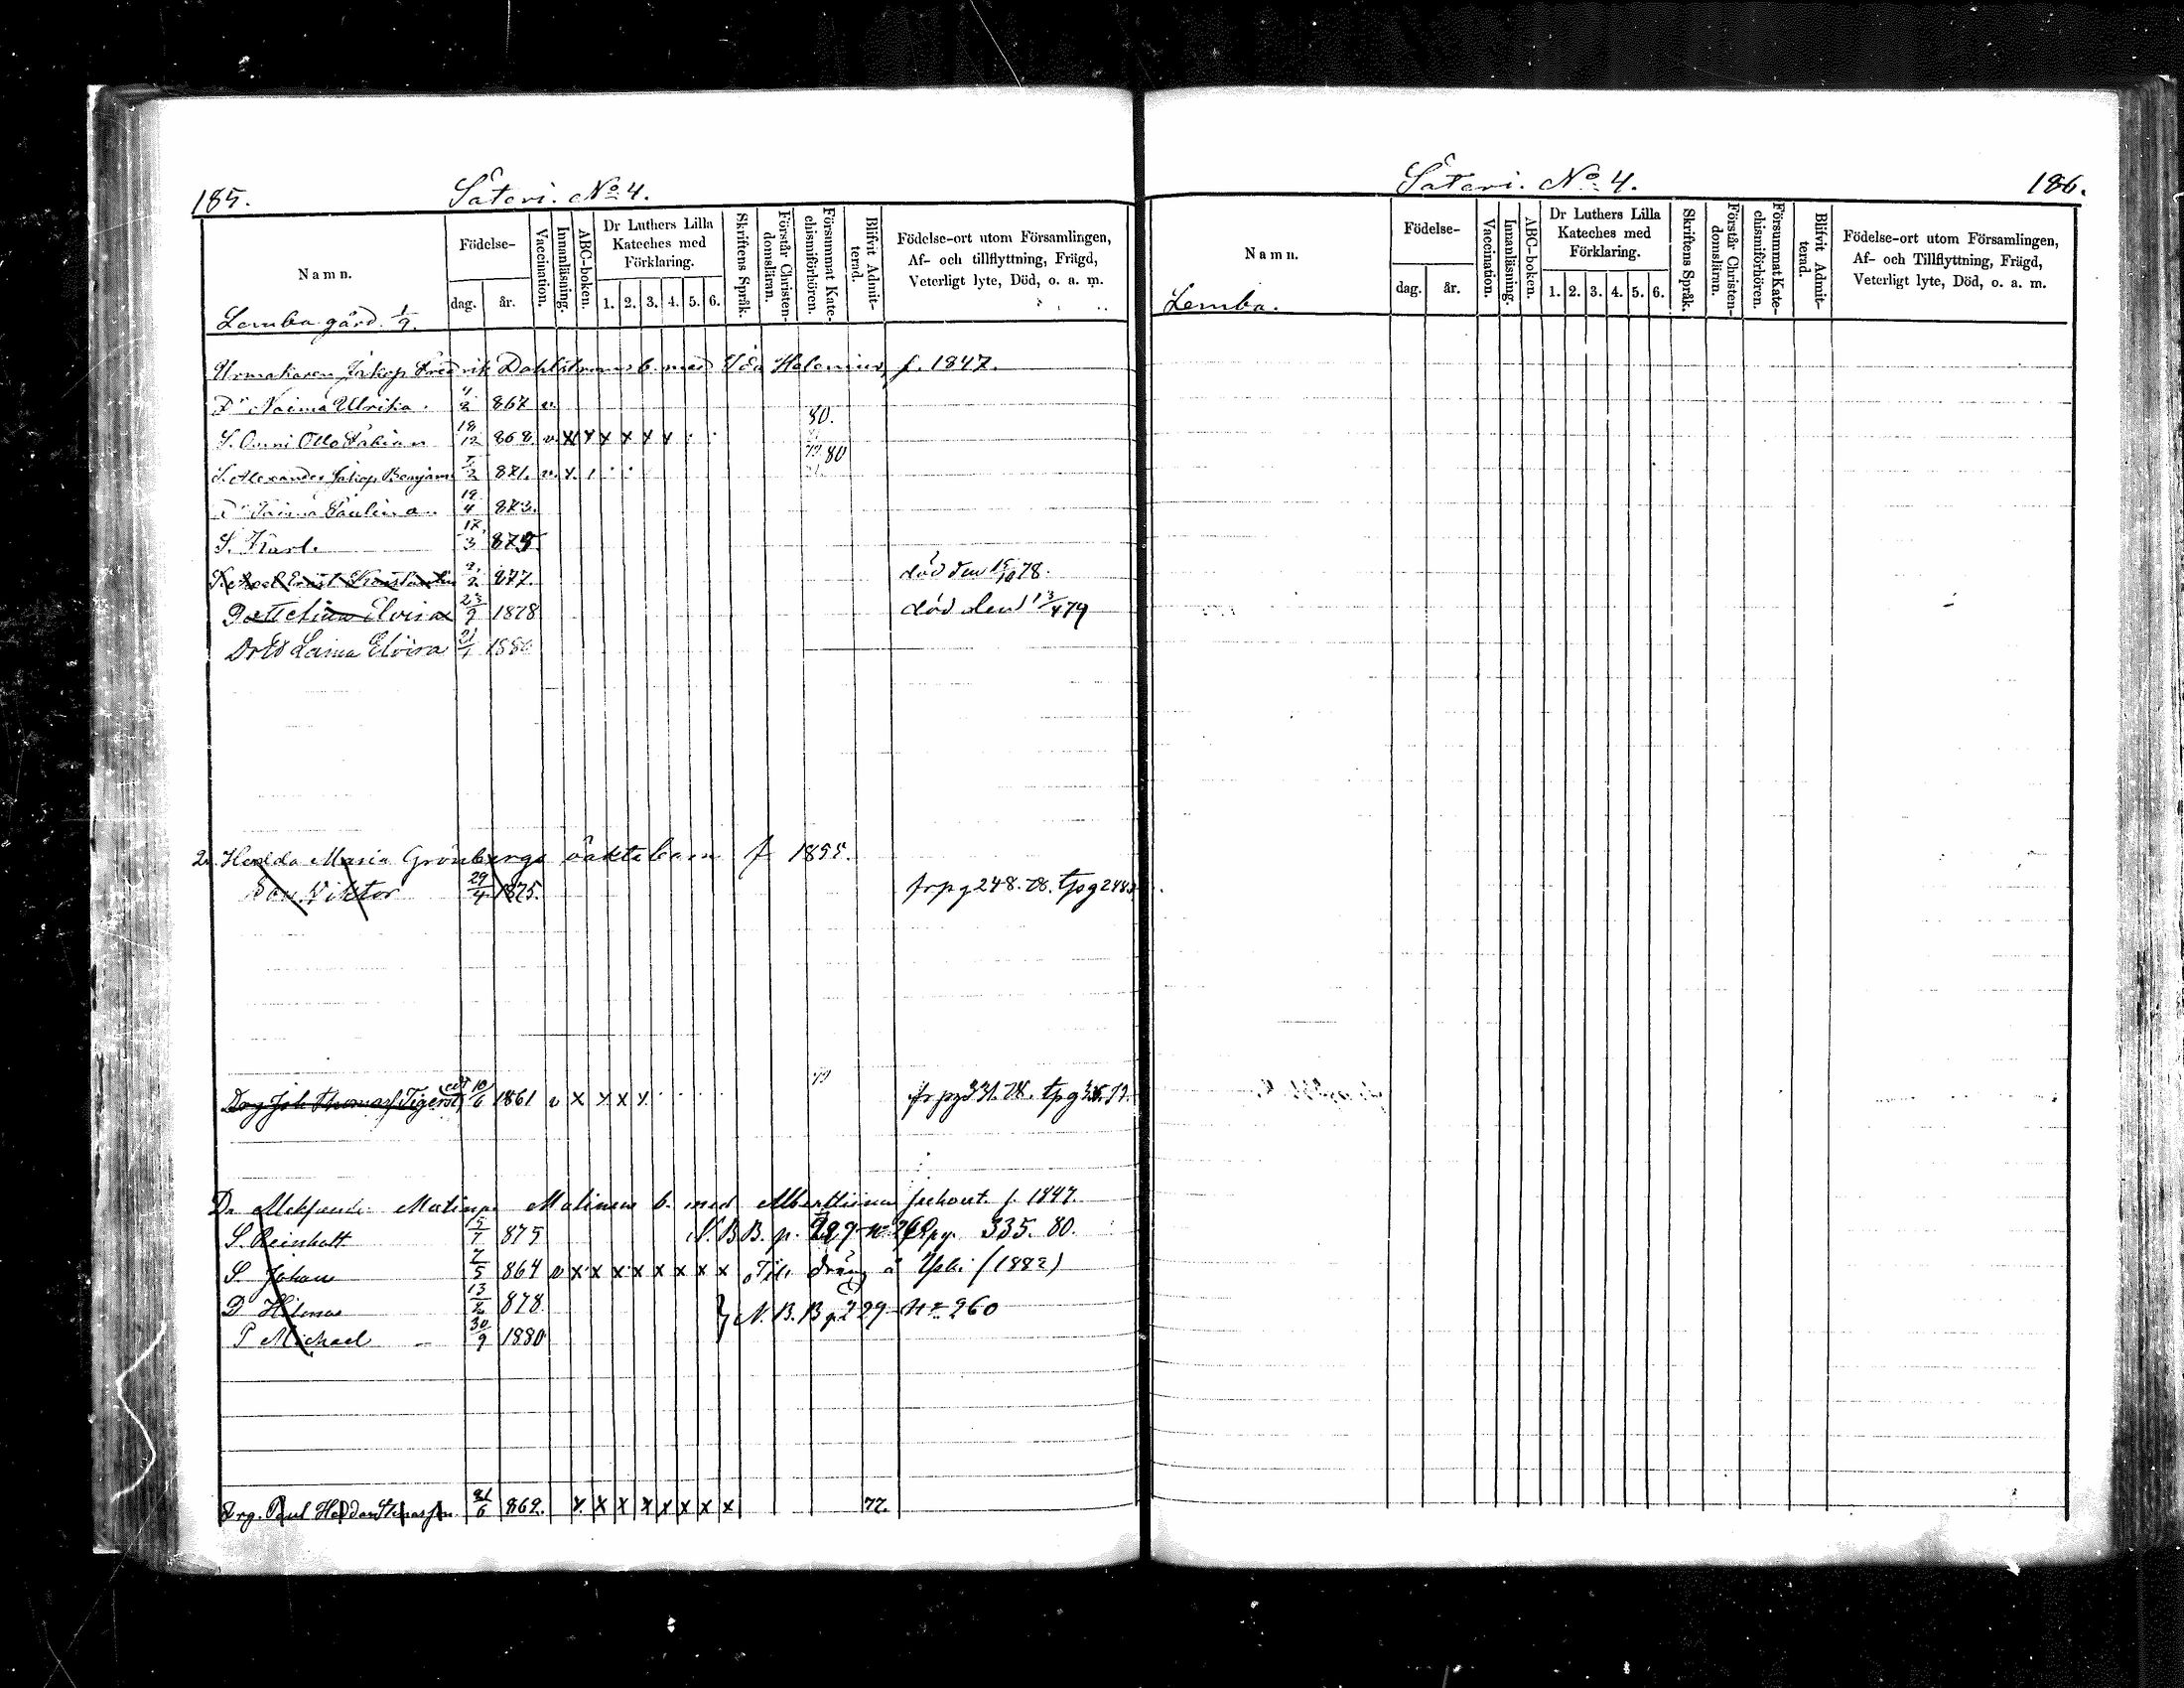 185.
Säteri. No 4.
Namn.
Födelse-
dag.
år.
Vaccination.
Innanläsning.
ABC-boken.
Dr Luthers Lilla Kateches med Förklaring.
1. 2. 3. 4. 5. 6.
Skriftens Språk.
Förstår Christen-domsläran.
Försummat Kate-chismiförhören.
Blifvit Admit-terad.
Födelse-ort utom Församlingen,
Af- och tillflyttning, Frägd,
Veterligt lyte, Död, o. a. m.
Lemba gård. 1/2.
Urmakaren Jakop Fredrik Dahlströms b. med Ida Helenius, f. 1847.
Dr Naima Ulrika. 4/2 867 v.
S. Onni Otto Fabian 18/12 868. v. x x x x x x 80.
S. Alexander Jakop Benjam 7/2 871. v. x 79 80
Dr Paulina 19/4 873.
S. Karl. 17/3 875
S. Axel Ernst Konstantin 9/2 877 död den 15/10 78.
D Elvira 23/9 1878 död den 13/4 79
Laina Elvira 21/1 1880
Hedda Maria Grönbergs oäkta barn f 1855.
Son Viktor 29/4 1875. frpg 248. 78. tpg 248
Drg Joh. Thomass. Tigerst 10/6 1861 v x x x x frpg 331. 78. tpg
Matinp. Matinens b. med Albertina f. 1847.
S. Reinholt 15/7 875 N.B B. p. 229 No 260 pg. 335. 80.
S. Johan 7/5 864 v x x x x x x x x Till dräng å (1882)
D Hilma 13/2 878 } N. B. B p 229 No 260
S Michael 30/9 1880
Drg. Paul 21/6 862. x x x x x x x x 77
Säteri. No 4.
186.
Namn.
Födelse-
dag.
år.
Vaccination.
Innanläsning.
ABC-boken.
Dr Luthers Lilla Kateches med Förklaring.
1. 2. 3. 4. 5. 6.
Skriftens Språk.
Förstår Christen-domslärnn.
Försummat Kate-chismiförhören.
Blifvit Admit-terad.
Födelse-ort utom Församlingen,
Af- och Tillflyttning, Frägd,
Veterligt lyte, Död, o. a. m.
Lemba.